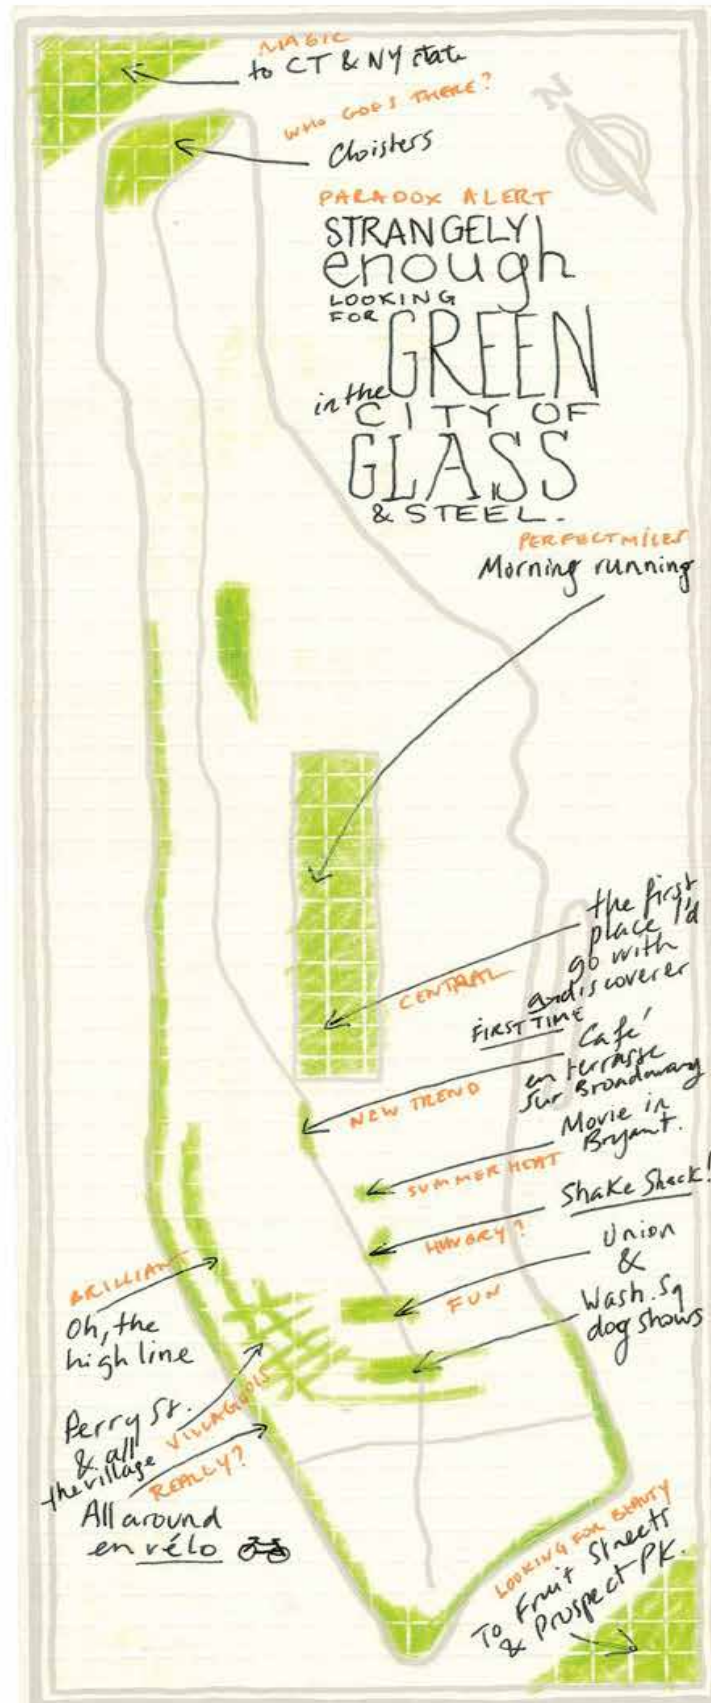 MAGIC
to CT & NY state
N
WHO GOES THERE?
Cloisters
PARADOX ALERT
STRANGELY
enough
LOOKING
FOR
GREEN
in the
CITY OF
GLASS
& STEEL.
PERFECT MILES
Morning running
the first
place I'd
go with
a discoverer
CENTRAL
FIRST TIME
Café
en terrasse
sur Broadway
NEW TREND
Movie in
Bryant.
SUMMER HEAT
Shake Shack!
HUNGRY?
Union
&
FUN
Wash. Sq
dog shows
BRILLIANT
Oh, the
high line
Perry St.
& all
the village
VILLAGEOIS
REALLY?
All around
en vélo
LOOKING FOR BEAUTY
To Fruit Streets
& Prospect PK.